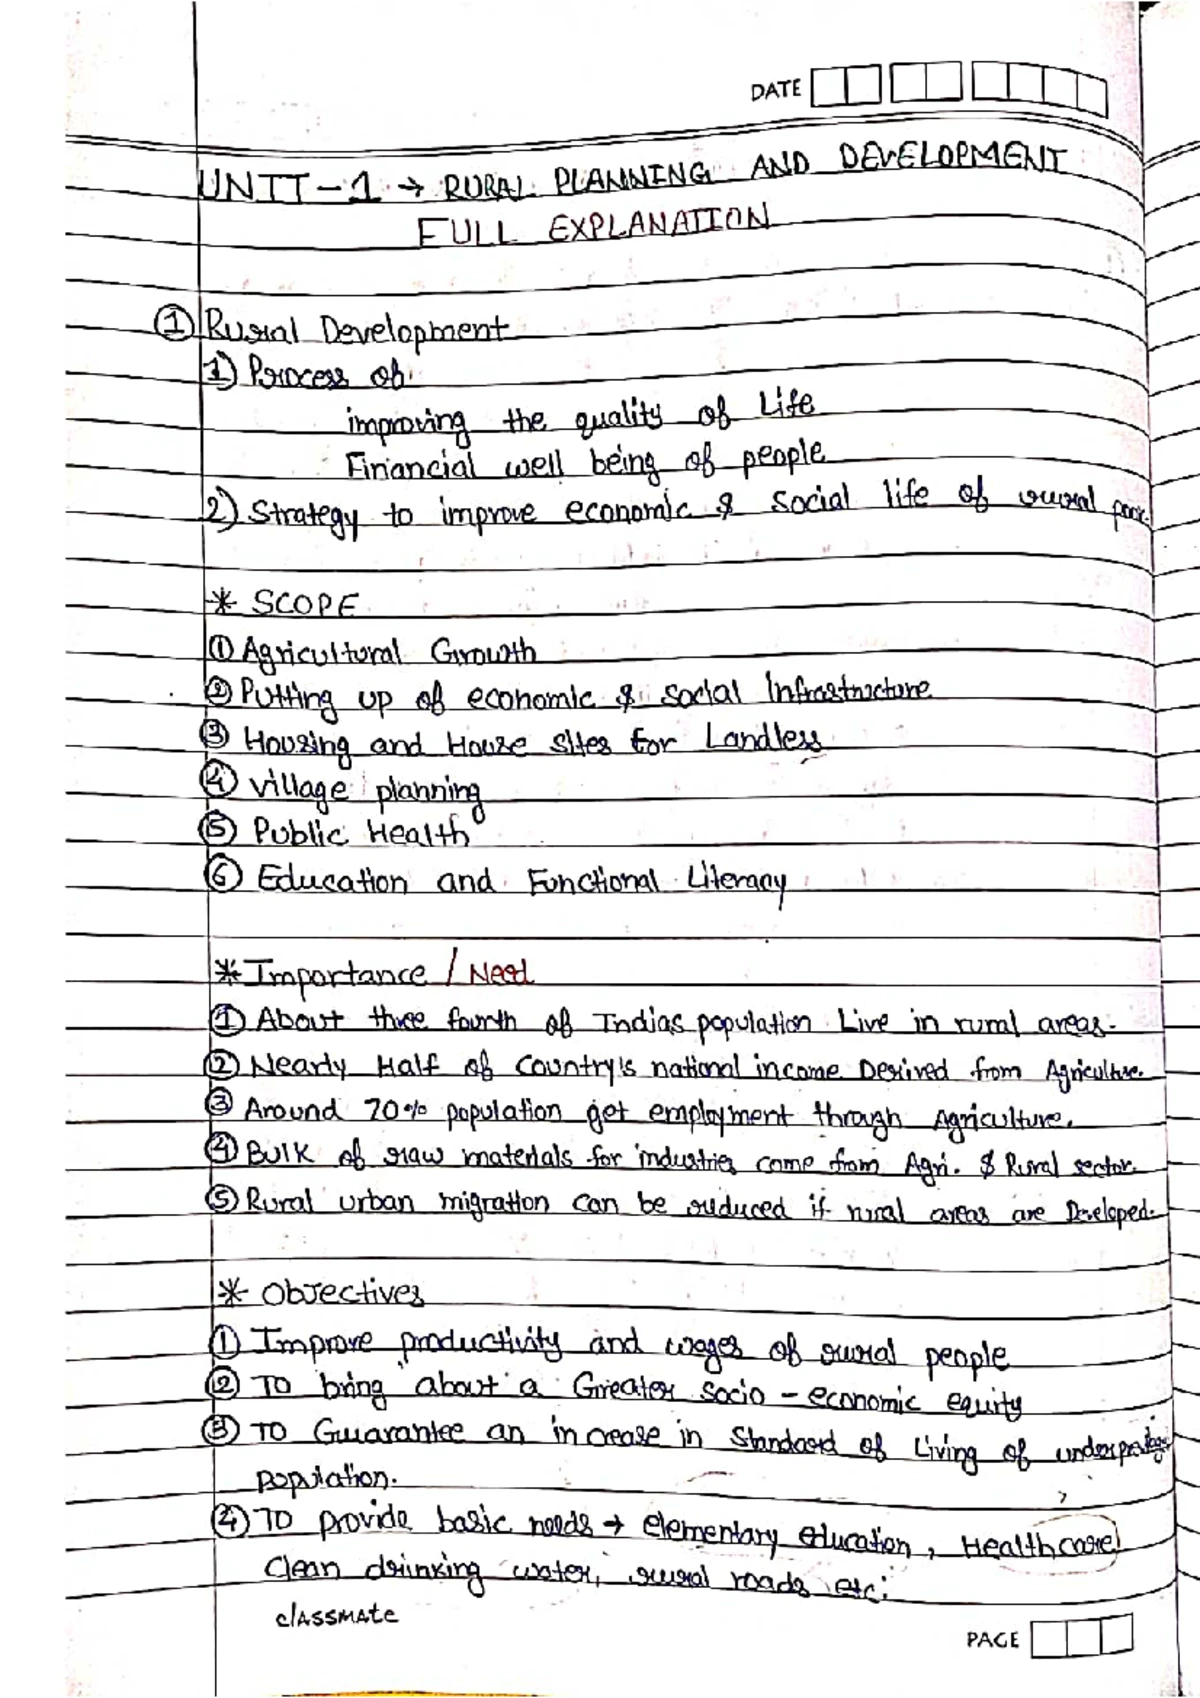 DATE
UNIT-1 → RURAL PLANNING AND DEVELOPMENT
FULL EXPLANATION
① Rural Development
1) Process of
improving the quality of Life
Financial well being of people
2) Strategy to improve economic & social life of rural poor.
* SCOPE
① Agricultural Growth
② Putting up of economic & social Infrastructure
③ Housing and House sites for Landless
④ Village planning
⑤ Public Health
⑥ Education and Functional Literacy
* Importance / Need
① About three fourth of Indias population Live in rural areas.
② Nearly Half of Country's national income Derived from Agriculture.
③ Around 70% population get employment through Agriculture.
④ Bulk of raw materials for industries come from Agri. & Rural sector.
⑤ Rural urban migration can be reduced if rural areas are Developed.
* Objectives
① Improve productivity and wages of rural people
② To bring about a Greater socio-economic equity
③ To Guarantee an increase in Standard of Living of
population.
④ To provide basic needs → elementary education, Healthcare
Clean drinking water, rural roads etc.
classmate
PAGE